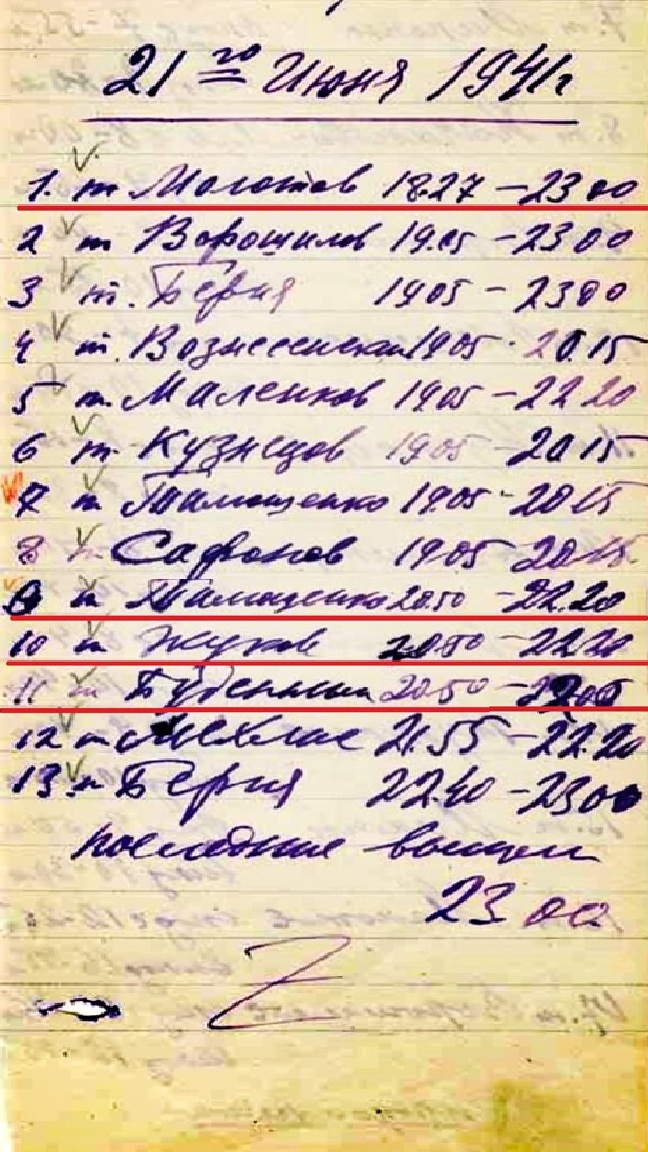 21го Июня 1941г
1. т Молотов 18.27 – 23 00
2 т Ворошилов 19.05 – 23 00
3 т. Берия 19 05 – 23 00
4 т. Вознесенский 19 05 - 20.15
5 т. Маленков 19 05 – 22 20
6 т. Кузнецов 19 05 – 20 15
7 т Тимошенко 19.05 - 20 15
8 т Сафонов 19 05 20 15.
9 т Тимошенко 20.50 – 22.20
10 т Жуков 20.50 – 22 20
11 т Буденный 20 50 – 22 00
12 т Мехлис 21.55 – 22.20
13 т Берия 22.40 – 23 00
последние вышли
23 00